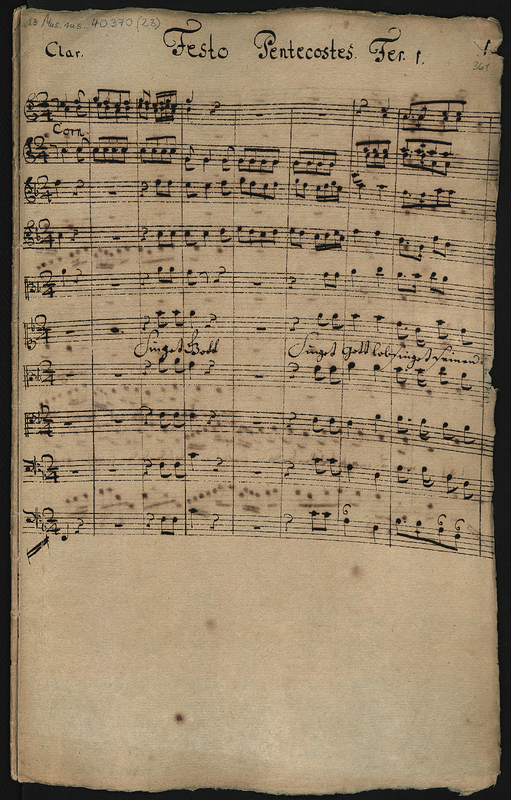 Mus. ms. 40.370 (23)
Clar. Festo Pentecostes. Fer. 1. 1.
361
Corn.
Singet Gott Singet Gott lobsinget seinem